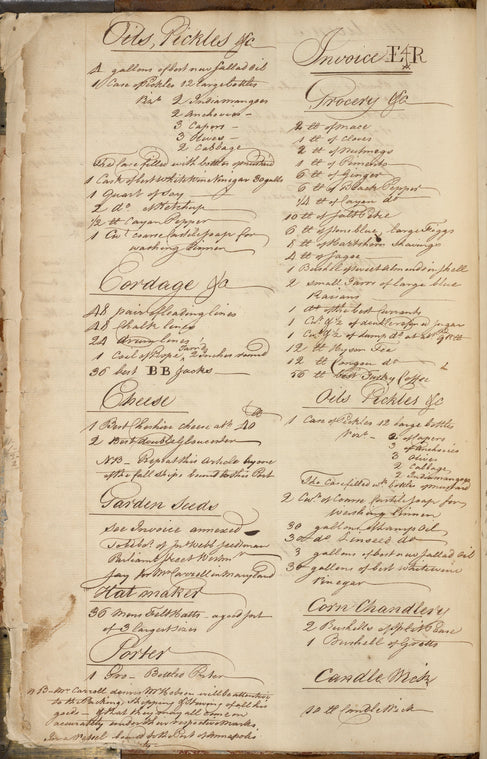 Oils, Pickles &c
4 gallons of best new Sallad Oil
1 Case of Pickles 12 large bottles
Vizt. 2 Indiamangoes
2 Anchovies
3 Capers
3 Olives
2 Cabbage
The Case filled with bottles of mustard
1 Cask of best White Wine Vinegar 30 galls
1 Quart of Soy
2 do. Ketchup
1/2 lb Cayan Pepper
1 Cwt. coarse Castile soap for
washing Linnen
Cordage &c
48 pair of leading lines
48 Chalk lines
24 lines
1 Coil of Rope, 2 Inches round
36 best BB Jacks
Cheese
1 Best Cheshire cheese abt. 40 lb
2 Best double Gloucester
NB - Repeat this Article by one
of the fall ships bound to this Port
Garden Seeds
See Invoice annexed
To be bot. of Jno. Webb Seedman
Parliamt Street Westmr
pay for Mr. Carroll in Maryland
Hatmaker
36 Mens Felt Hatts - a good sort
of 3 largest sizes
Porter
1 Gro - Bottles Porter
NB - Mr. Carroll desires Mr. Hobson will be attentive
to the Packing, Shipping & Storing of all his
goods - & that they may all come on
accurately under their respective Marks
In a Vessel bound to the Port of Annapolis
Invoice
Grocery &c
2 lb of mace
1 lb of Cloves
2 lb of Nutmegs
1 lb of Pimento
6 lb of Ginger
6 lb of Black Pepper
1/4 lb of Cayan do
10 lb of Salt Petre
6 lb of large Figgs
8 lb of Hartshorn Shavings
4 lb of Sagoe
1 Bushel of Sweet almonds in shell
2 small Jarrs of large blue
Raisins
1 of the best Currants
1 Cwt. of double refind sugar
1 Cwt. of Lump do. at
12 lb Hyson Tea
12 lb Congou do
56 lb best Turky Coffee
Oils Pickles &c
1 Case of Pickles 12 large bottles
Vizt. 2 of Capers
3 of Anchovies
3 Olives
2 Cabbage
2 Indiamangoes
The Case filled wt. bottles of Mustard
2 Cwt. of Coarse Castile soap for
Washing Linnen
30 gallons of Lamp Oil
30 do Linseed do
3 gallons of best new Sallad Oil
36 gallons of best White wine
Vinegar
Corn Chandlery
2 Bushells of Split Pease
1 Bushell of Grotts
Candle Wick
10 lb Candle Wick